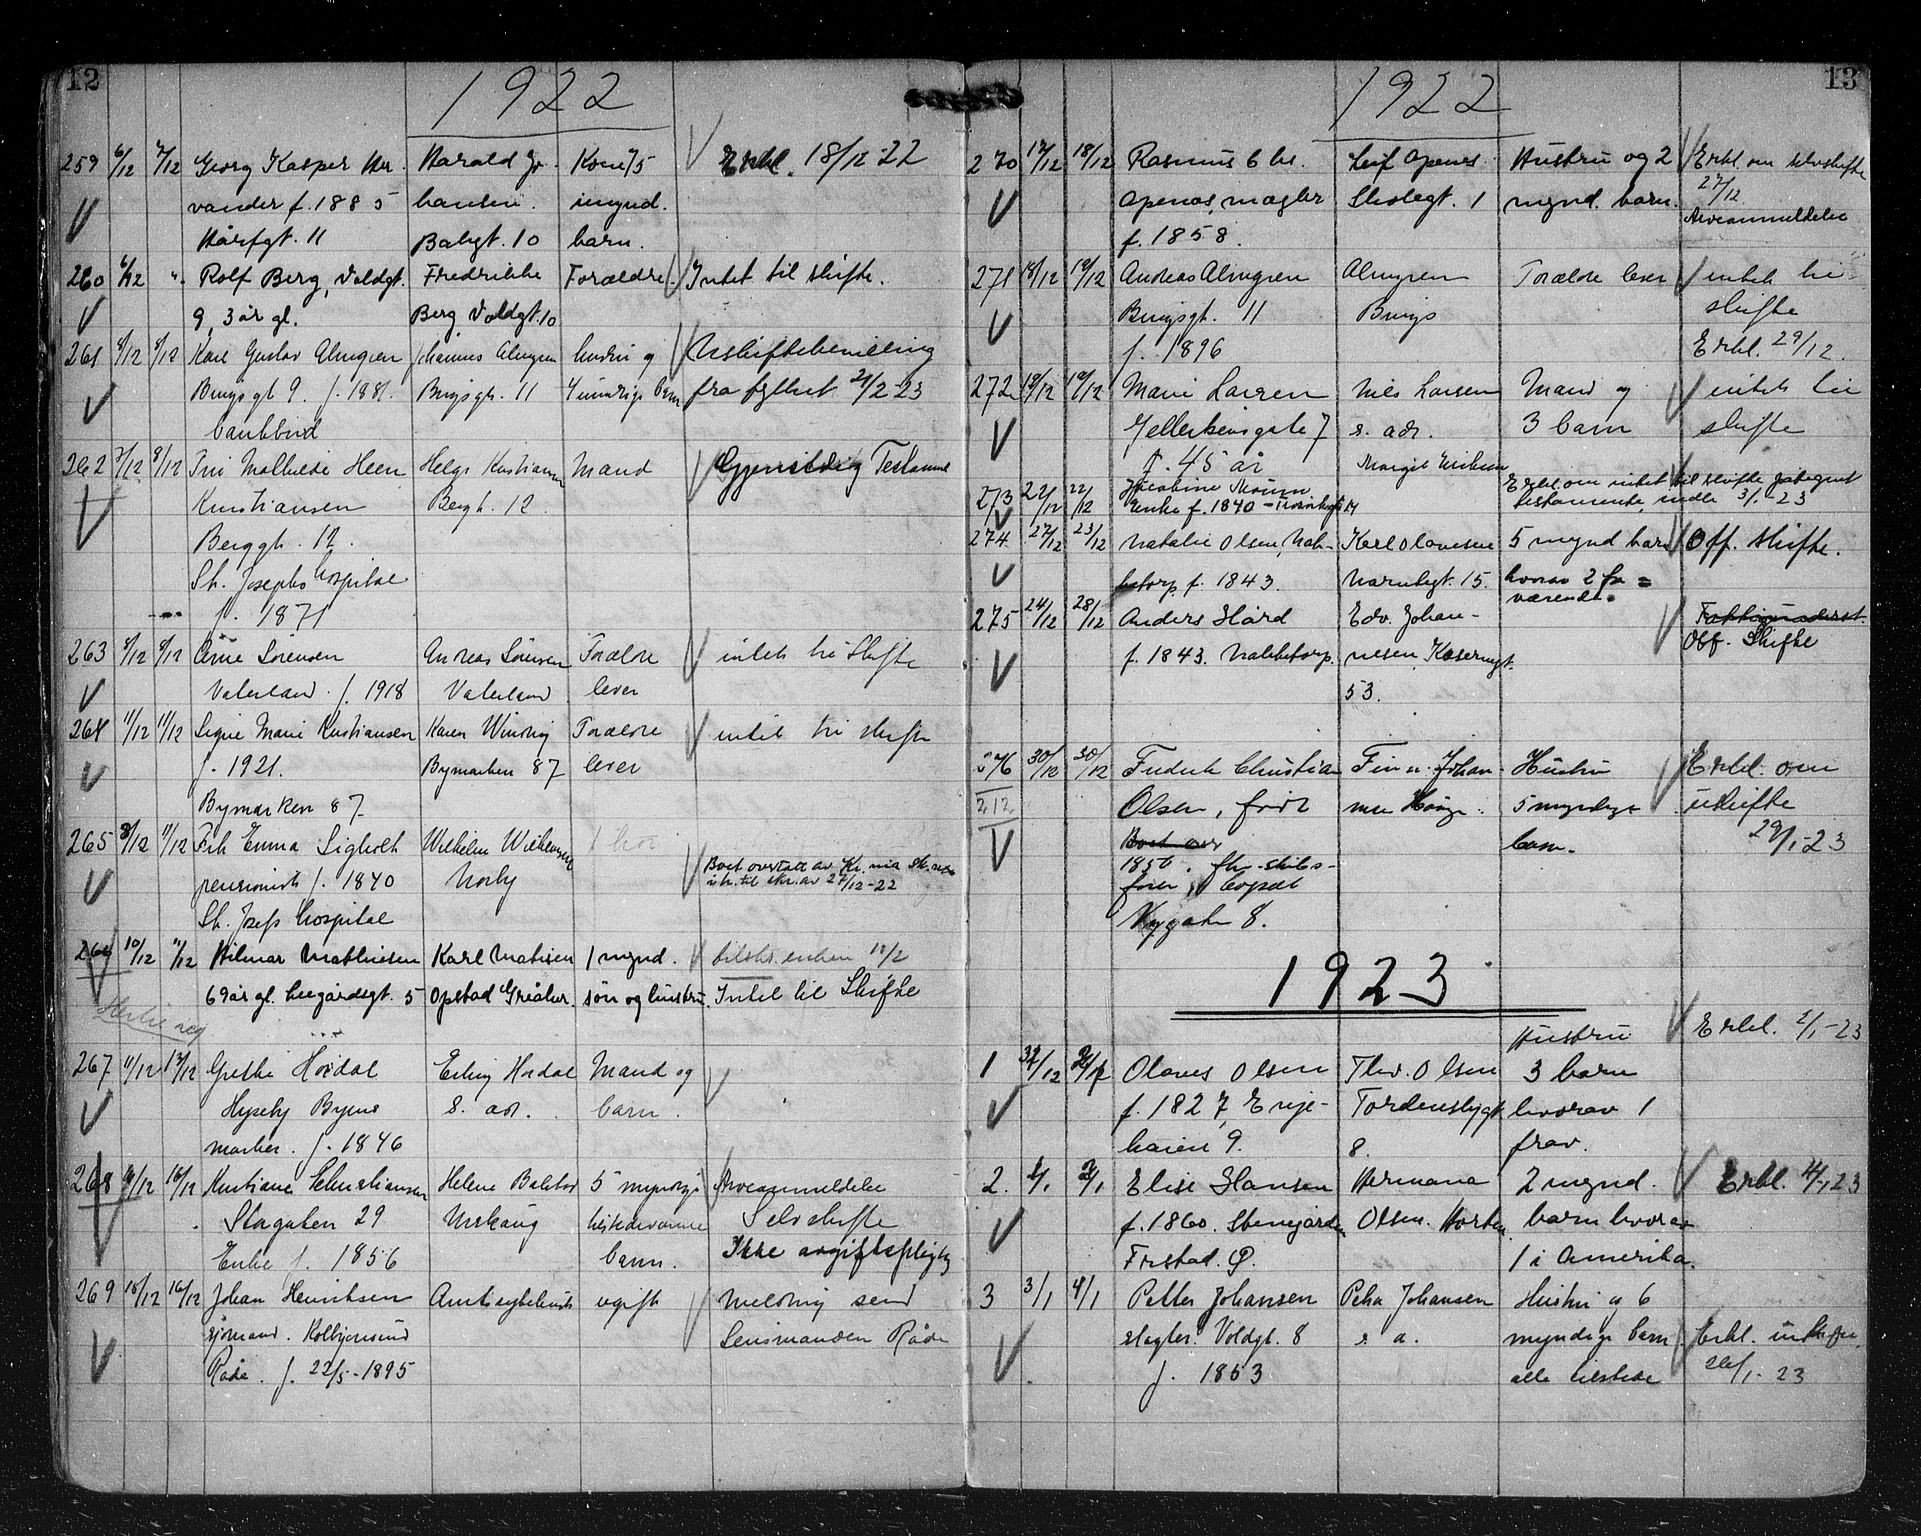 12
1922
259 6/12 7/12 Georg Kasper Her- Harald Jo- Kone 5 Erkl. 18/12 22
vander f. 1885 hansen. imynd.
Hårfgt. 11 Bakgt. 10 barn.
260 6/12 " Rolf Berg, Voldgt. Fredrikke Forældre Intet til skifte.
9, 3 år gl. Berg Voldgt. 10
261 8/12 8/12 Karl Gustav Almgren Johannes Almgren hustru og Uskiftebevilling
Brugsgt 9. f. 1881. Brugsgt. 11 4 umyndige Barn fra fylket 21/2-23
262 7/12 8/12 Fru Mathilde Heen Helge Kristiansen Mand Gjensidig Testament
Kristiansen Bergt. 12.
Berggt. 12.
St. Josephs hospital
f. 1871
263 8/12 9/12 Arne Sørensen Andreas Sørensen Forældre intet til Skifte
Vaterland. f. 1918 Vaterland lever
264 11/12 11/12 Signe Marie Kristiansen Karen Forældre intet til skifte
f. 1921. Bymarken 87 lever
Bymarken 87
265 8/12 11/12 Frk Emma Sigholt Wilhelm Wilhelmsen
pensionist f. 1840 Norby Boet overtatt av Kr.nia
til skr. av 27/12-22
St. Josefs hospital
266 10/12 11/12 Hilmar Mathiesen Karl Matisen 1 mynd. tilskr. enken 12/2
69 år gl. Leegårdsgt. 5 Opstad Greåker. søn og hustru. Intet til Skifte
267 11/12 13/12 Grethe Hordal Erling Hordal Mand og
Hyseby Byens s. adr. barn.
marker. f. 1846
268 14/12 16/12 Kristiane Christiansen Helene Balstad 5 myndige Arveanmeldelse
Storgaten 29 Urskaug tilstedeværende Selvskifte
Enke f. 1856 barn. Ikke avgiftspligtig
269 15/12 16/12 Johan Henriksen Amtssykehuset ugift Melding send
sjømand. Kolbjørnsund Lensmanden Råde
Råde. f. 22/5-1895
13
1922
270 17/12 18/12 Rasmus Chr. Leif Openos Hustru og 2 Erkl. om selvskifte
27/12
Openos, mægler Skolegt. 1 mynd. barn. Arveanmeldelse
f. 1858.
271 18/12 19/12 Andreas Almgren Almgren Forældre lever intet til
Brugsgt. 11 Brugs skifte
f. 1896 Erkl. 29/12.
272 19/12 19/12 Marie Larsen Nils Larsen Mand og intet til
Gellertsensgate 7 s. adr. 3 barn skifte
f. 45 år
273 22/12 22/12 Jacobine Margit Eriksen Erkl. om intet til skifte påtegnet
Enke f. 1840 testamente, 3/1-23
274 27/12 23/12 Natalie Olsen, Nab- Karl Olavesen 5 mynd barn Off. skifte.
betorp f. 1843. Varnaligt. 15. hvorav 2 fra=
værende.
275 24/12 28/12 Anders Hård Edv. Johan-
Off. Skifte
f. 1843. Nabbetorp. nesen, Kaserngt.
53.
276 30/12 30/12 Fredrik Christian Finn Johan- Hustru Erkl. om
212 Olsen, født 5 myndige uskifte
Boet over barn. 29/1-23
1856. fhv. skibs-
fører, Nygaten 8.
1923
1 31/12 2/1 Olaves Olsen Thv. Olsen Hustru 3 barn Erkl. 2/1-23
f. 1827, Enje- Tordenskgt hvorav 1
haven 9. 8. frav.
2. 1/1 2/1 Elise Hansen Hermana 2 mynd. Erkl. 4/1 23
f. 1860. Stengården Olsen. Horten barn hvorav
Frstad. Ø. 1 i Amerika.
3 3/1 4/1 Petter Johansen Petra Johansen Hustru og 6
slagter. Voldgt. 8 s. a. myndige barn Erkl. uskifte
f. 1853 alle tilstede 24/1-23